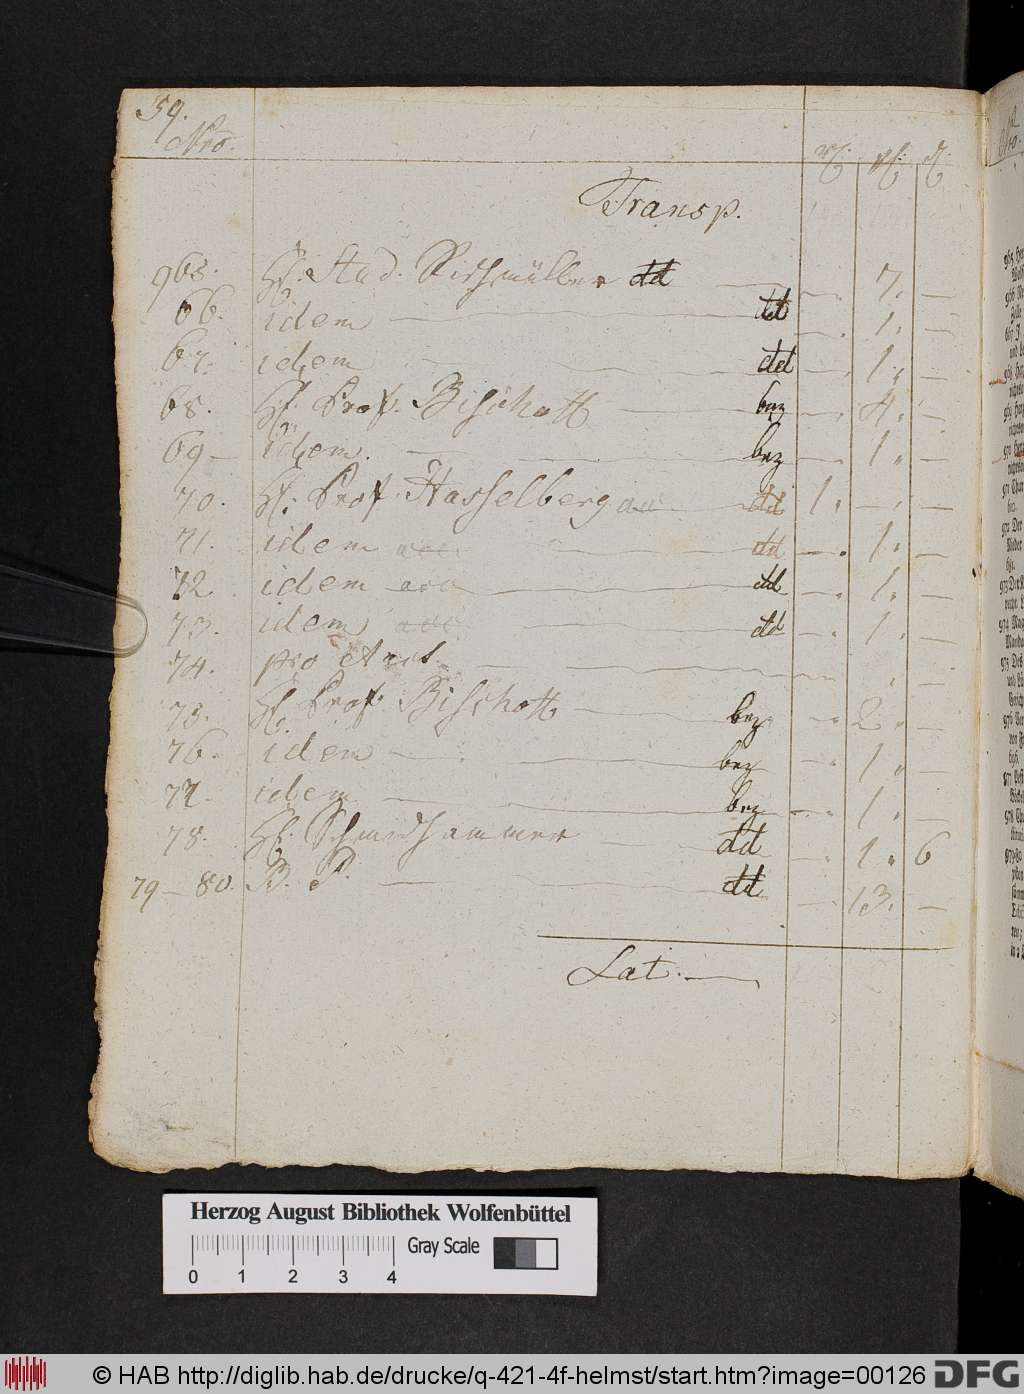 59.
Nro.
Transp.
965. H. Stud. dd — 7. —
66. idem dd — 1. —
67. idem dd — 1. —
68. H. Prof. Bischoff bez — 4. —
69 — idem. bez — 1. —
70. H. Prof. Hasselberg dd 1. — —
71. idem dd — 1. —
72 idem dd — 1. —
73. idem dd — 1. —
74. pro Arit — . —
75. H. Prof. Bischoff bez — 2. —
76. idem bez — 1. —
77. idem bez — 1. —
78. H. Schmidhammer dd — 1. 6
79 — 80. B. P. dd — 13. —
Lat.
Herzog August Bibliothek Wolfenbüttel
Gray Scale
0 1 2 3 4
© HAB http://diglib.hab.de/drucke/q-421-4f-helmst/start.htm?image=00126
DFG